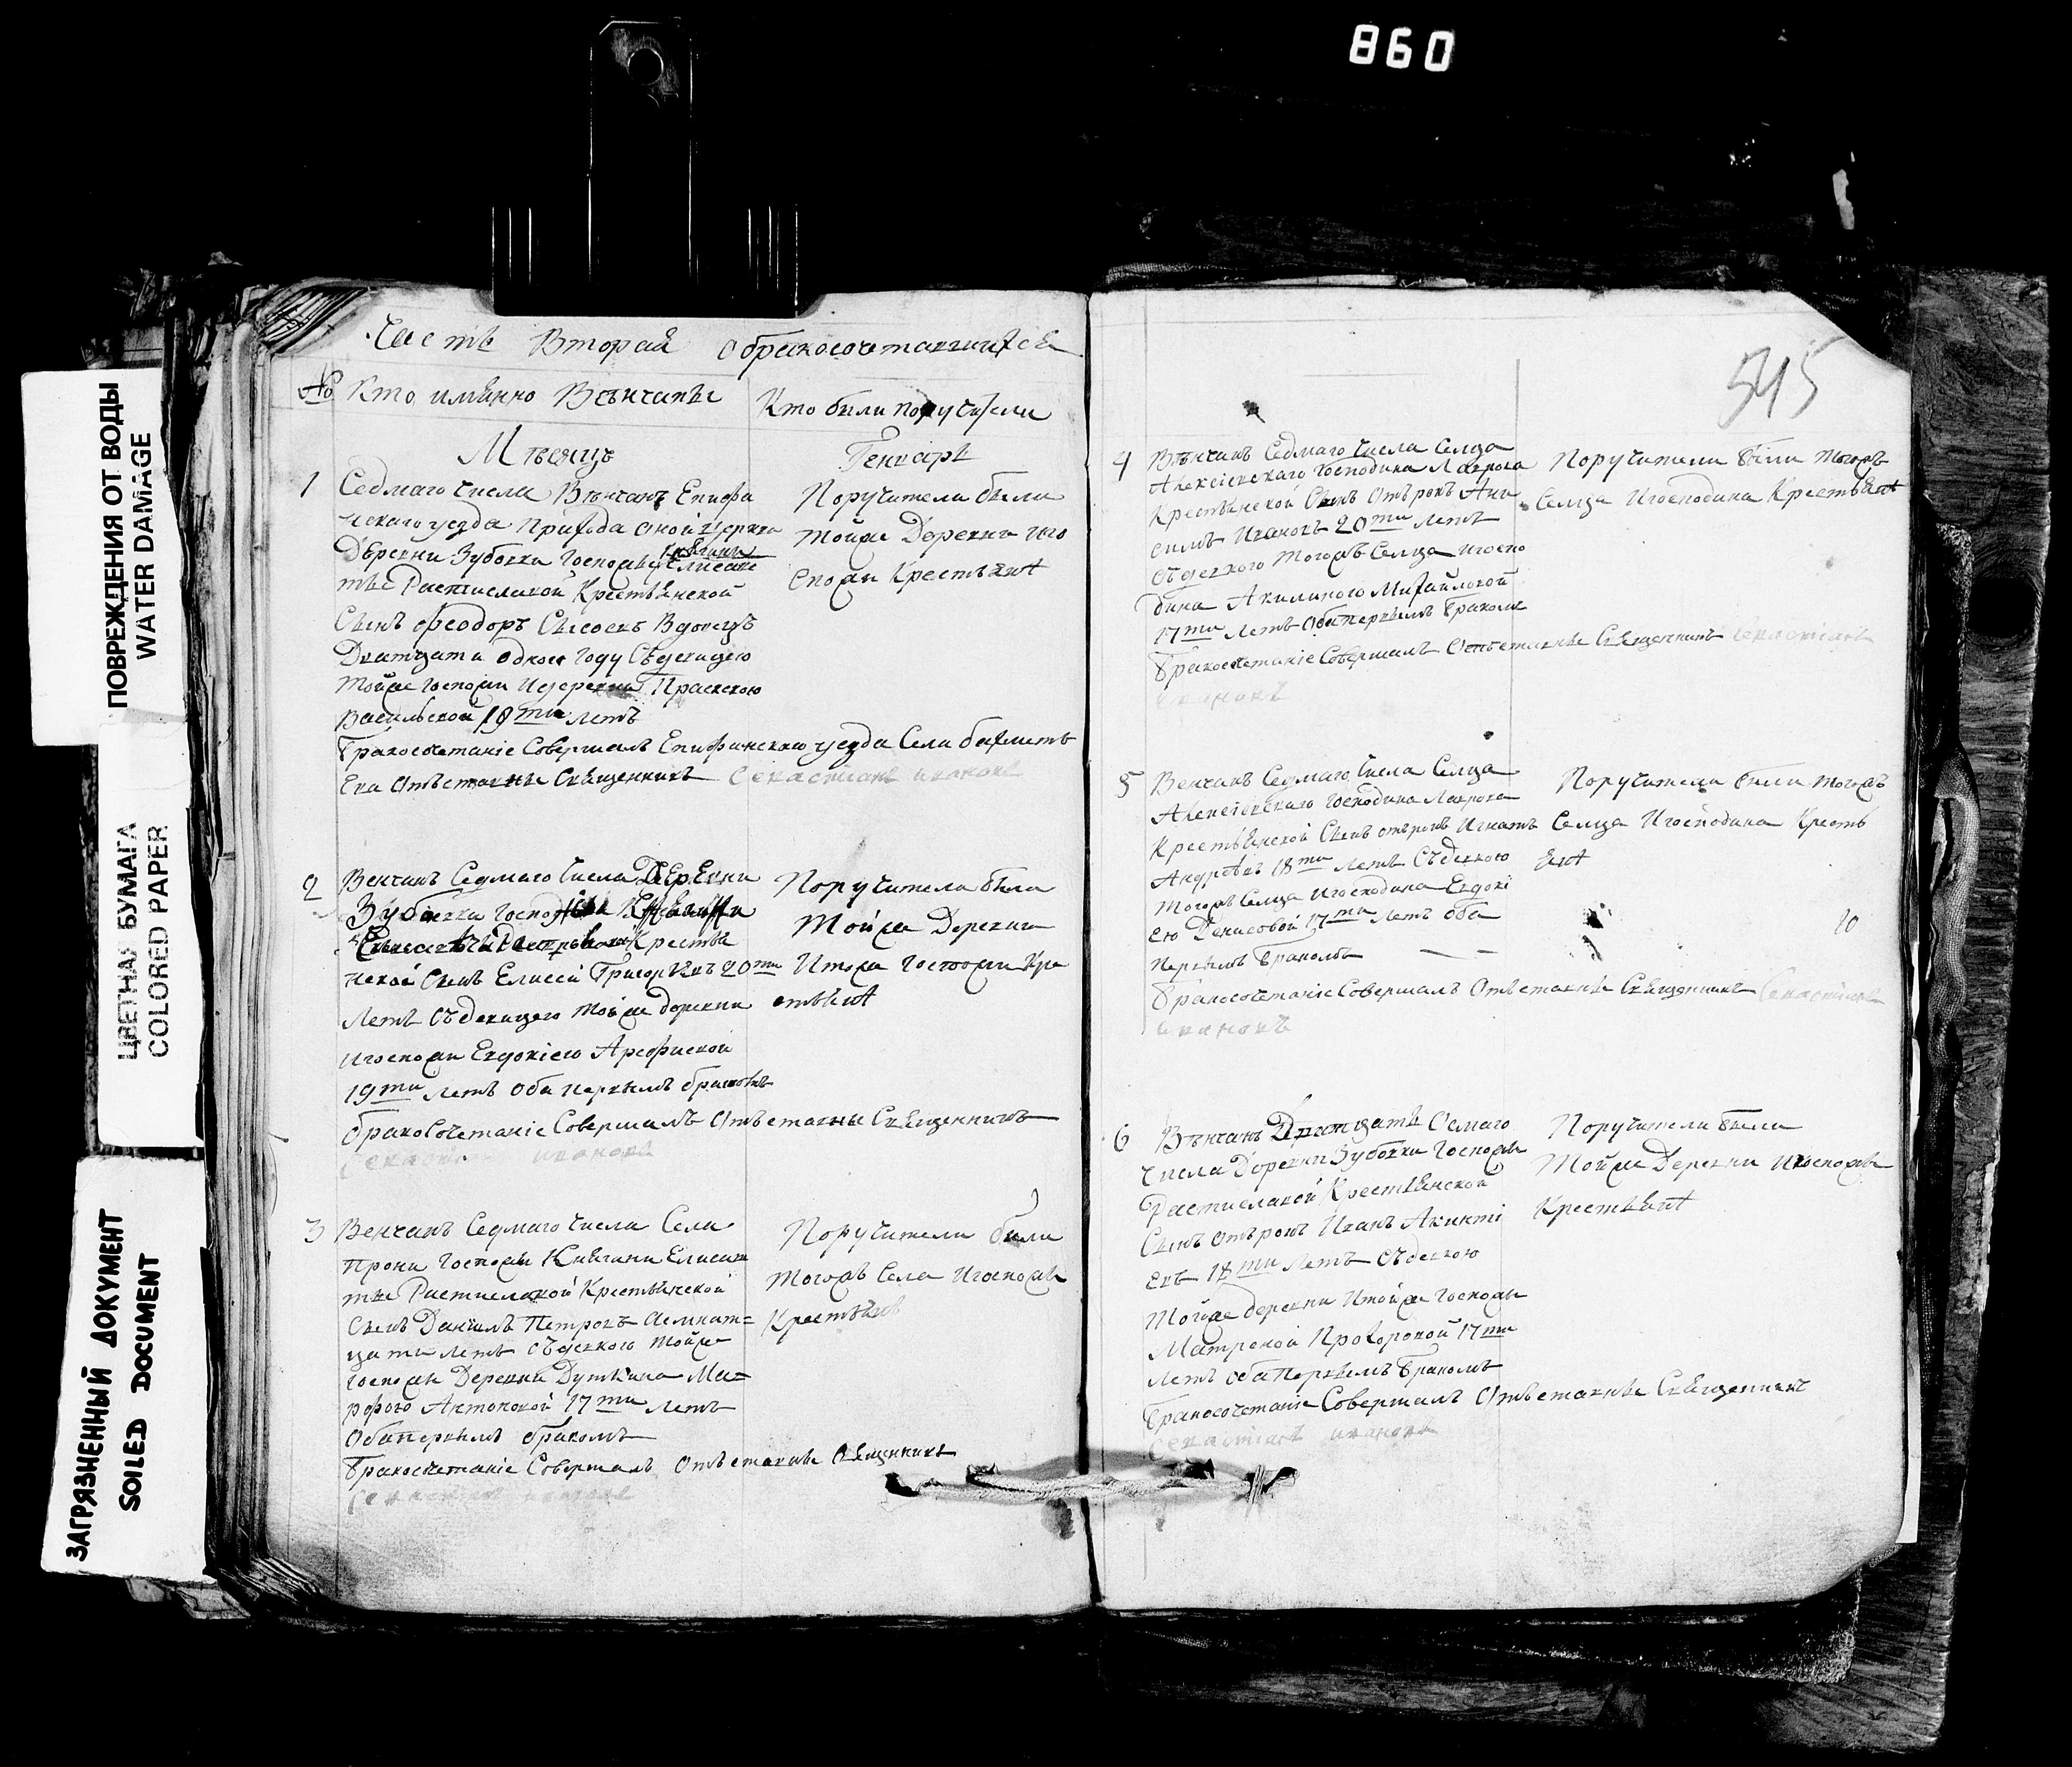 860
ПОВРЕЖДЕНИЯ ОТ ВОДЫ
WATER DAMAGE
ЦВЕТНАЯ БУМАГА
COLORED PAPER
ЗАГРЯЗНЕННЫЙ ДОКУМЕНТ
SOILED DOCUMENT
Часть Вторая обракосочетавшихся
№ Кто имянно Вѣнчанъ
Кто были поручители
Мѣсяцъ
Генварь
1 Седмаго числа Вѣнчанъ Епифа
нскаго уезда прихода оной церкви
Деревни Зубовки Госпожи Княгини Елисаве
ты Растиславой Крестьянской
Сынъ Феодоръ Сысоевъ Вдовецъ
Дватцати одного году Съ девицею
тойже госпожи Прасковою
Васильевой 18ти летъ
Бракосочетание Совершалъ Епифанскаго уезда Села бахметь
Ева Отвѣтаные Священникъ Севастианъ ивановъ
Поручители были
тойже Деревни иго
спожи Крестьяня
2 Венчанъ Седмаго числа Деревни
Зубовки
Крестья
нской Сынъ Елисей Григорьевъ 20ти
летъ Съ девицею тойже деревни
игоспожи Евдокиею Арефиевой
19ти летъ оба первымъ бракомъ
бракосочетание Совершалъ Священникъ
ивановъ
Поручители были
Тойже Деревни
Итоже Госпожи Кре
стьяня
3 Венчанъ Седмаго числа Села
Прони Госпожи Княгини Елисаве
ты Растиславой Крестьянской
Сынъ Даниилъ Петровъ
цати летъ Съ девкою тойже
госпожи Деревни Ма-
рфою Антоновой 17ти летъ
Оба первымъ бракомъ
Бракосочетание Совершалъ Священникъ
Поручители были
тогожъ Села Игоспожи
Крестьяня
545
4 Вѣнчанъ Седмаго числа Селца
Алексіевскаго Господина Лаврова
Крестьянской Сынъ Отрокъ Ани
симъ Ивановъ 20ти летъ
Съдевкою тогожъ Селца игоспо
дина Акилиною Михайловой
17ти летъ оба первымъ бракомъ
Бракосочетание Совершалъ Священникъ Севастианъ
ивановъ
Поручители были тогожъ
Селца Игосподина Крестьяня
5 Венчанъ Седмаго числа Селца
Алексіевскаго господина Лаврова
Крестьянской Сынъ отрокъ Игнатъ
Андреевъ 18ти летъ Съдевкою
тогожъ Селца игосподина Евдокі
ею Денисовой 17ти летъ оба
первымъ бракомъ
Бракосочетание Совершалъ Священникъ Севастианъ
ивановъ
Поручители были тогожъ
Селца Игосподина Кресть
яня
10
6 Вѣнчанъ Дватцать Осмаго
числа Деревни Зубовки Госпожи
Растиславой Крестьянской
Сынъ Отрокъ Иванъ Акинті
евъ 18ти летъ Съдевкою
тойже деревни Итойже Госпожи
Матреной Прохоровой 17ти
летъ оба Первымъ Бракомъ
Бракосочетание Совершалъ Священникъ
Севастианъ ивановъ
Поручители были
Тойже Деревни Игоспожи
Крестьяня